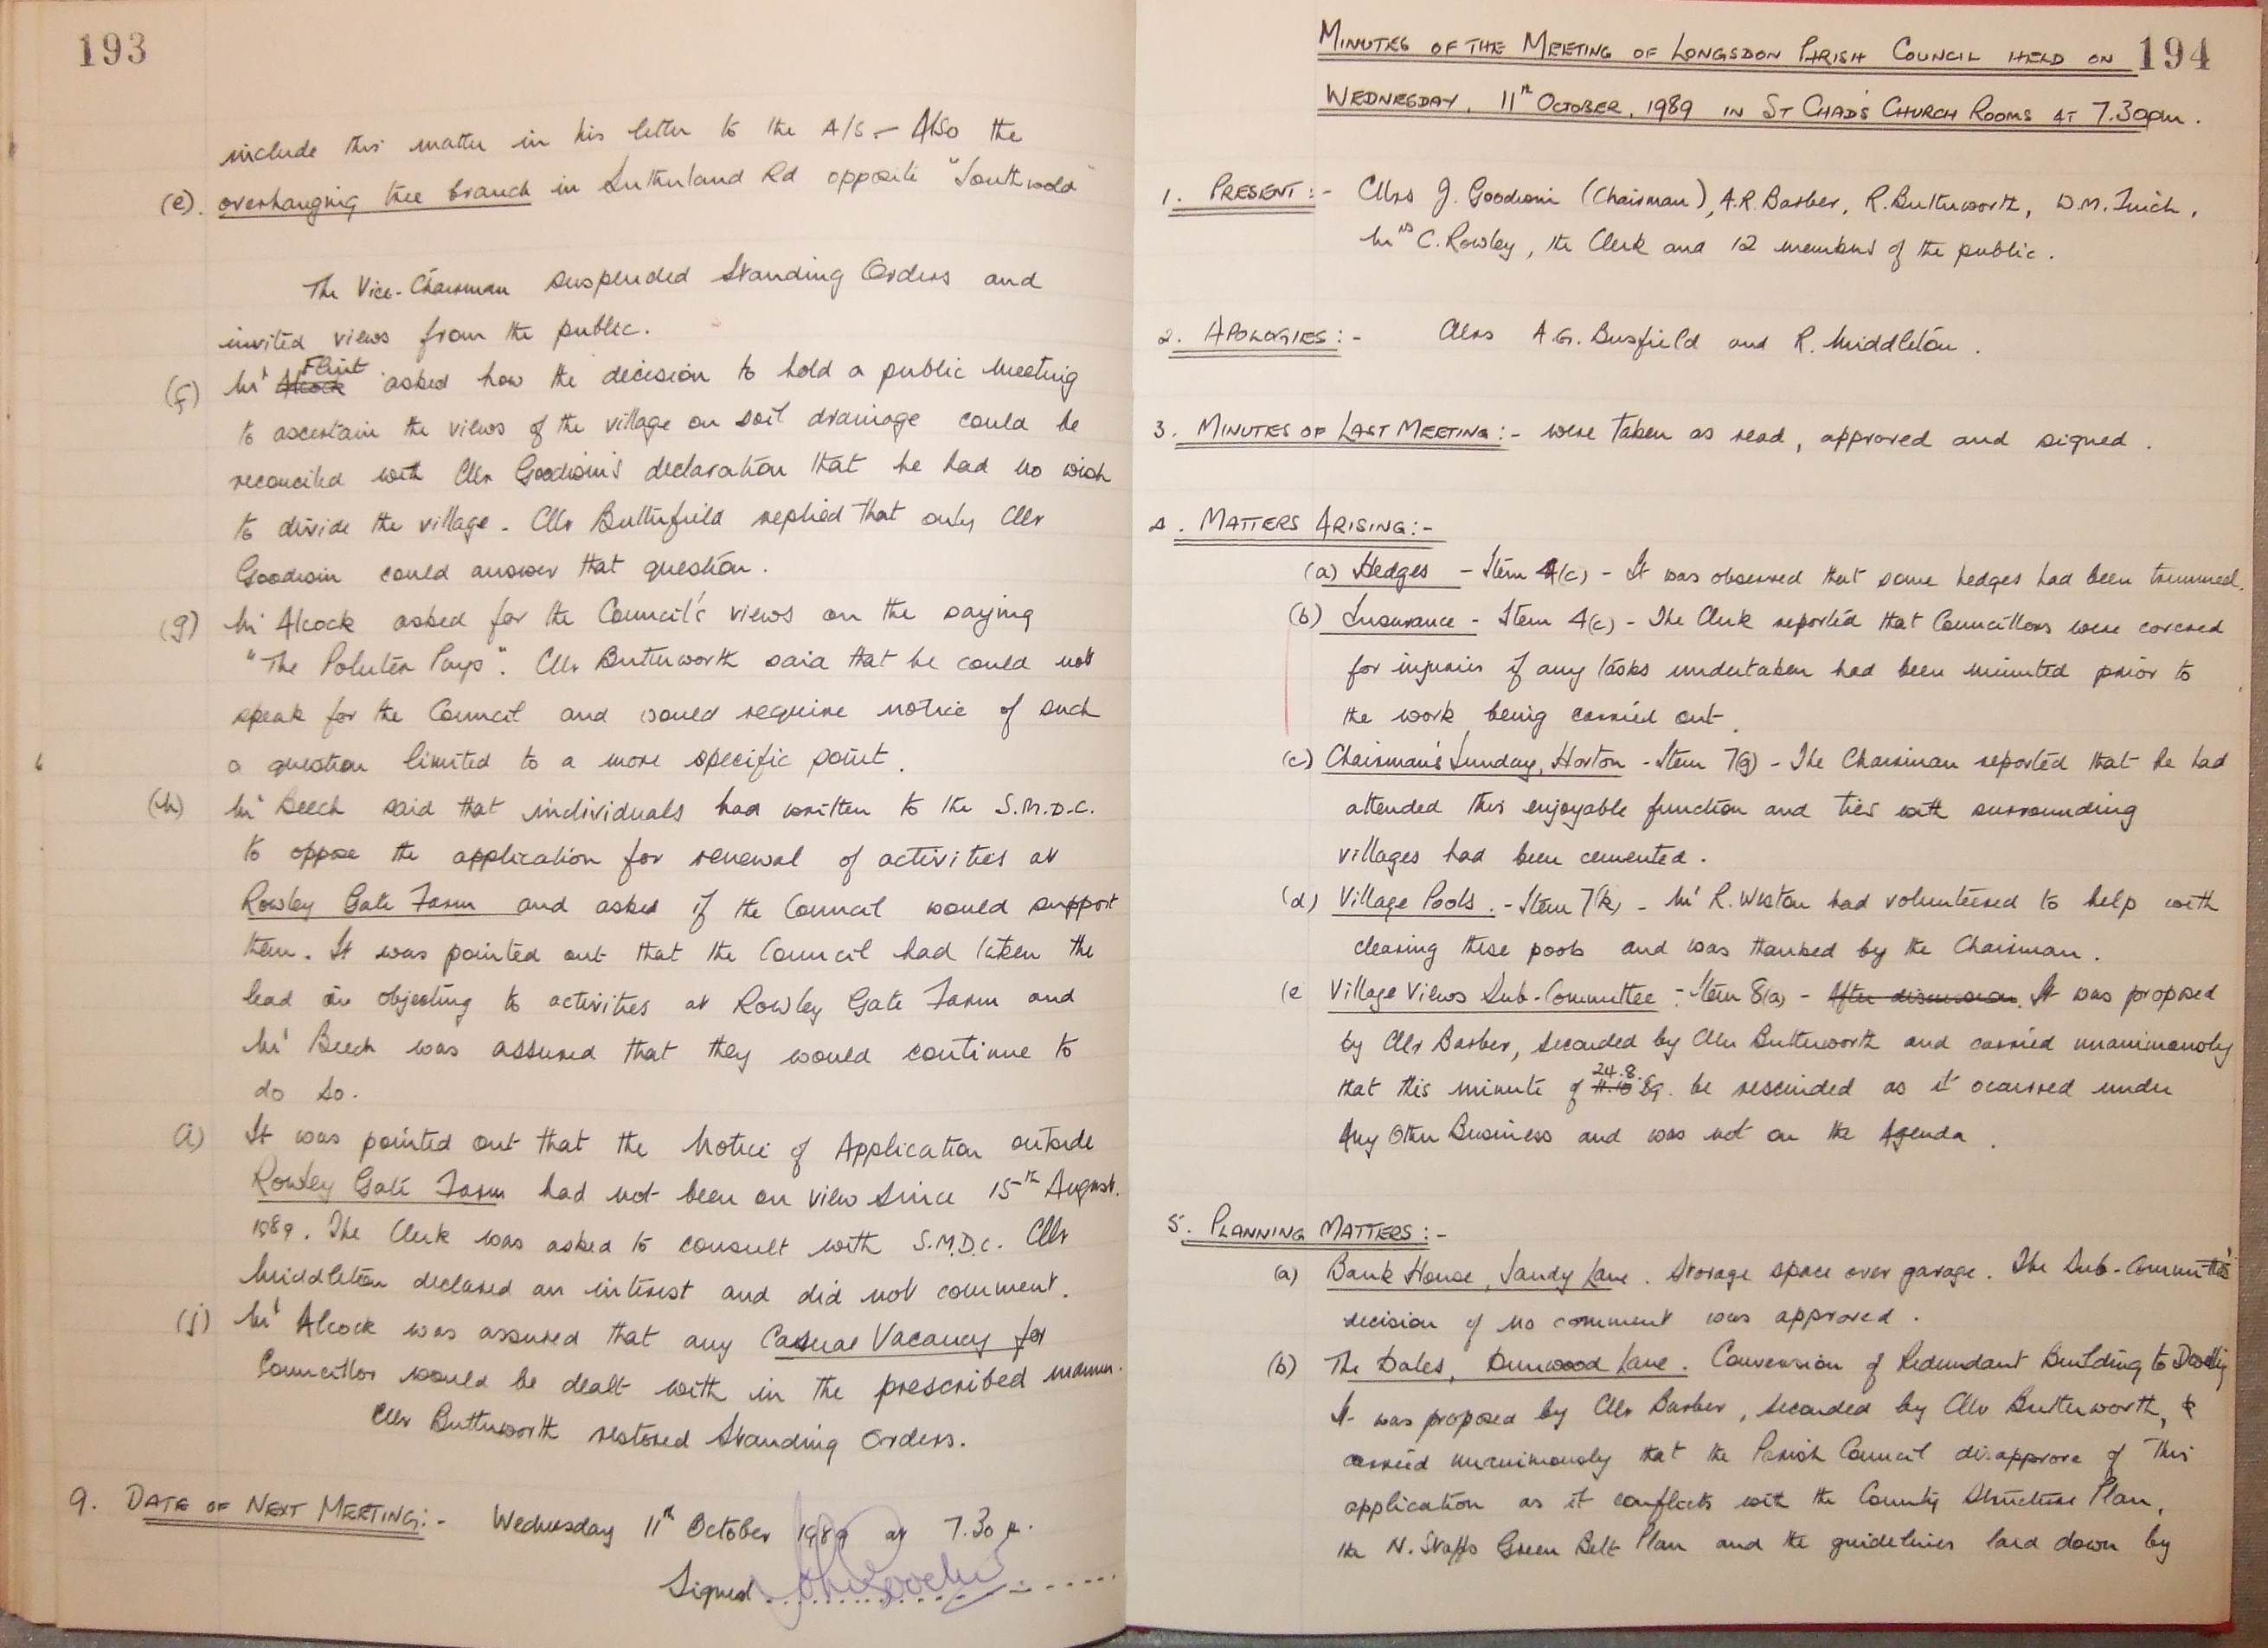 193
include this matter in his letter to the A/S – Also the
(e). overhanging tree branch in Sutherland Rd opposite "Southwold"
The Vice-Chairman suspended Standing Orders and
invited views from the public.
(f) Mr Alcock Flint asked how the decision to hold a public meeting
to ascertain the views of the village on soil drainage could be
reconciled with Cllr Goodwin's declaration that he had no wish
to divide the village. Cllr Butterfield replied that only Cllr
Goodwin could answer that question.
(g) Mr Alcock asked for the Council's views on the saying
"The Poluter Pays". Cllr Butterworth said that he could not
speak for the Council and would require notice of such
a question limited to a more specific point.
(h) Mr Beech said that individuals had written to the S.M.D.C.
to oppose the application for renewal of activities at
Rowley Gate Farm and asked if the Council would support
them. It was pointed out that the Council had taken the
lead in objecting to activities at Rowley Gate Farm and
Mr Beech was assured that they would continue to
do so.
(i) It was pointed out that the Notice of Application outside
Rowley Gate Farm had not been on view since 15th August.
1989. The Clerk was asked to consult with S.M.D.C. Cllr
Middleton declared an interest and did not comment.
(j) Mr Alcock was assured that any Casual Vacancy for
Councillor would be dealt with in the prescribed manner.
Cllr Butterworth restored Standing Orders.
9. DATE OF NEXT MEETING:- Wednesday 11th October 1989 at 7.30 p.
Signed
MINUTES OF THE MEETING OF LONGSDON PARISH COUNCIL HELD ON 194
WEDNESDAY, 11th OCTOBER, 1989 IN ST CHAD'S CHURCH ROOMS AT 7.30pm.
1. PRESENT:- Cllrs J. Goodwin (Chairman), A.R. Barber, R. Butterworth, W.M. Finch,
Mrs C. Rowley, the Clerk and 12 members of the public.
2. APOLOGIES:- Cllrs A.G. Busfield and R. Middleton.
3. MINUTES OF LAST MEETING:- were taken as read, approved and signed.
4. MATTERS ARISING:-
(a) Hedges - Item 4(c) - It was observed that some hedges had been trimmed.
(b) Insurance - Item 4(c) - The Clerk reported that Councillors were covered
for injuries if any tasks undertaken had been minuted prior to
the work being carried out.
(c) Chairman's Sunday, Horton - Item 7(g) - The Chairman reported that he had
attended this enjoyable function and ties with surrounding
villages had been cemented.
(d) Village Pools. - Item 7(k) - Mr R. Weston had volunteered to help with
clearing these pools and was thanked by the Chairman.
(e Village Views Sub-Committee - Item 8(a) - After discussion. It was proposed
by Cllr Barber, seconded by Cllr Butterworth and carried unanimously
that this minute of 11.10 24.8.89. be rescinded as it ocurred under
Any Other Business and was not on the Agenda.
5. PLANNING MATTERS:-
(a) Bank House, Sandy Lane. Storage space over garage. The Sub-Committee's
decision of no comment was approved.
(b) The Dales, Dunwood Lane. Conversion of Redundant Building to Dwelling
It was proposed by Cllr Barber, seconded by Cllr Butterworth, &
carried unanimously that the Parish Council disapprove of this
application as it conflicts with the County Structure Plan,
the N. Staffs Green Belt Plan and the guidelines laid down by